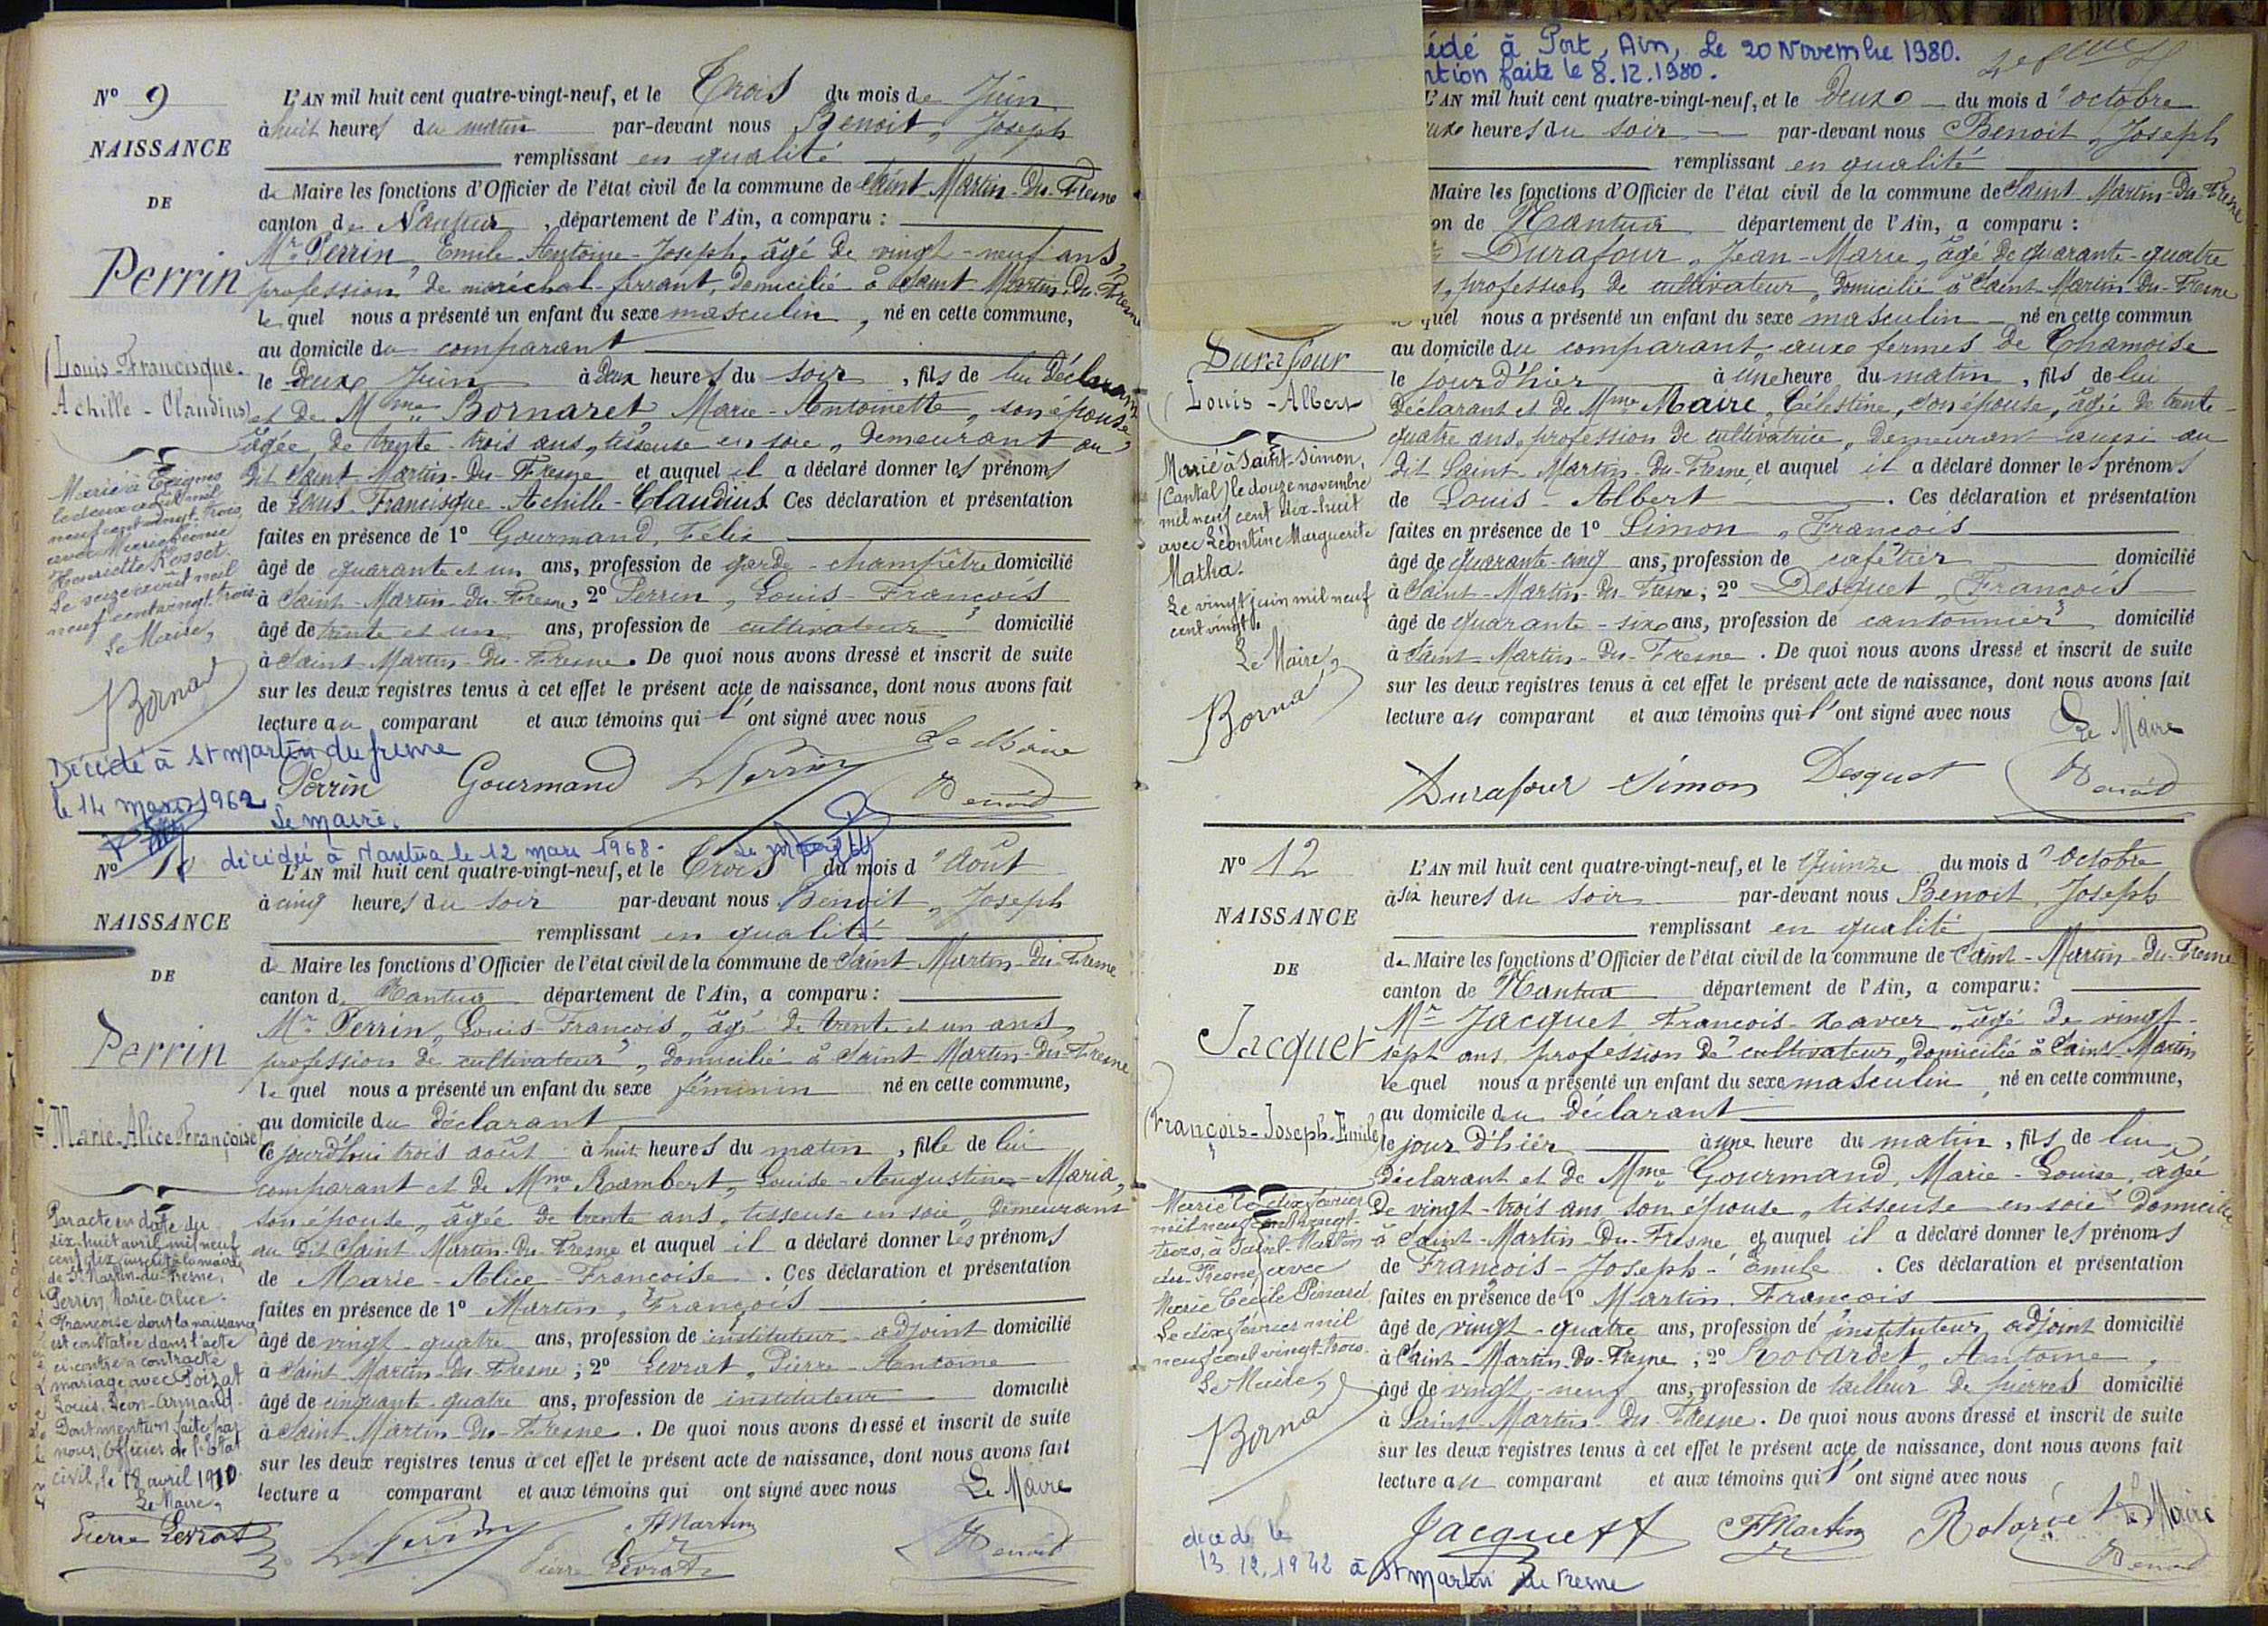 N° 9
NAISSANCE
DE
Perrin
(Louis Francisque
Achille - Claudius)
L'AN mil huit cent quatre-vingt-neuf, et le Trois du mois de Juin
à huit heures du matin par-devant nous Benoit, Joseph
remplissant en qualité
de Maire les fonctions d'Officier de l'état civil de la commune de Saint-Martin-du-Fresne
canton de Nantua, département de l'Ain, a comparu :
Mr Perrin Emile Antoine-Joseph, âgé de vingt-neuf ans,
profession de maréchal-ferrant, domicilié à Saint Martin-du-Fresne
le quel nous a présenté un enfant du sexe masculin, né en cette commune,
au domicile du comparant
le deux Juin à deux heures du soir, fils de lui déclarant
et de Mme Bornaret, Marie-Antoinette, son épouse,
âgée de trente-trois ans, tisseuse en soie, demeurant au
dit Saint-Martin-du-Fresne et auquel il a déclaré donner les prénoms
de Louis Francisque-Achille-Claudius. Ces déclaration et présentation
faites en présence de 1° Gourmand, Félix
âgé de quarante et un ans, profession de garde-champêtre domicilié
à Saint-Martin-du-Fresne, 2° Perrin, Louis-François
âgé de trente et un ans, profession de cultivateur, domicilié
à Saint-Martin-du-Fresne. De quoi nous avons dressé et inscrit de suite
sur les deux registres tenus à cet effet le présent acte de naissance, dont nous avons fait
lecture au comparant et aux témoins qui l'ont signé avec nous
Marié à
le deux août mil
neuf cent vingt-trois,
avec Marie
Henriette Rosset.
Le seize août mil
neuf cent vingt-trois
Le Maire,
Bornad
Le Maire
Perrin Gourmand L Perrin Benoit
Décédé à St martin du fresne
le 14 mars 1962
Le maire.
N° 10
décédée à Nantua le 12 mars 1968.
NAISSANCE
DE
Perrin
Marie-Alice Françoise
L'AN mil huit cent quatre-vingt-neuf, et le Trois du mois d'Août
à cinq heures du soir par-devant nous Benoit, Joseph
remplissant en qualité
de Maire les fonctions d'Officier de l'état civil de la commune de Saint-Martin-du-Fresne
canton de Nantua département de l'Ain, a comparu :
Mr Perrin, Louis-François, âgé de trente et un ans,
profession de cultivateur, domicilié à Saint Martin-du-Fresne
le quel nous a présenté un enfant du sexe féminin né en cette commune,
au domicile du déclarant
ce jourd'hui trois août à huit heures du matin, fille de lui
comparant et de Mme Rambert, Louise-Augustine-Maria,
son épouse, âgée de trente ans, tisseuse en soie, demeurant
au dit Saint Martin-du-Fresne et auquel il a déclaré donner les prénoms
de Marie-Alice-Françoise. Ces déclaration et présentation
faites en présence de 1° Martin, François
âgé de vingt-quatre ans, profession de instituteur-adjoint domicilié
à Saint Martin-du-Fresne; 2° Levrat, Pierre-Antoine
âgé de cinquante-quatre ans, profession de instituteur domicilié
à Saint-Martin-du-Fresne. De quoi nous avons dressé et inscrit de suite
sur les deux registres tenus à cet effet le présent acte de naissance, dont nous avons fait
lecture a comparant et aux témoins qui ont signé avec nous
Par acte en date du
dix-huit avril mil neuf
cent dix inscrit à la mairie
de St Martin-du-Fresne,
Perrin Marie Alice
Françoise dont la naissance
est constatée dans l'acte
ci contre a contracté
mariage avec Poizat
Louis-Léon-Armand.
Dont mention faite par
nous, Officier de l'Etat
civil, le 18 avril 1910.
Le Maire,
Le Maire
Pierre Levrat L Perrin F Martin Pierre Levrat Benoit
édé à Port, Ain, Le 20 Novembre 1980.
ntion faite le 8.12.1980.
Durafour
(Louis-Albert)
L'AN mil huit cent quatre-vingt-neuf, et le deux du mois d'octobre
heures du soir par-devant nous Benoit, Joseph
remplissant en qualité
Maire les fonctions d'Officier de l'état civil de la commune de Saint-Martin-du-Fresne
on de Nantua département de l'Ain, a comparu :
Durafour, Jean-Marie, âgé de quarante-quatre
s, profession de cultivateur, domicilié à Saint-Martin-du-Fresne
quel nous a présenté un enfant du sexe masculin né en cette commun
au domicile du comparant, aux fermes de Chamoise
le jour d'hier à une heure du matin, fils de lui
déclarant et de Mme Maire, Célestine, son épouse, âgée de trente-
quatre ans, profession de cultivatrice, demeurant aussi au
dit Saint-Martin-du-Fresne, et auquel il a déclaré donner les prénoms
de Louis-Albert. Ces déclaration et présentation
faites en présence de 1° Simon, François
âgé de quarante-cinq ans, profession de cafetier domicilié
à Saint-Martin-du-Fresne; 2° Desquet, François
âgé de quarante-six ans, profession de cantonnier domicilié
à Saint-Martin-du-Fresne. De quoi nous avons dressé et inscrit de suite
sur les deux registres tenus à cet effet le présent acte de naissance, dont nous avons fait
lecture au comparant et aux témoins qui l'ont signé avec nous
Marié à Saint-Simon,
(Cantal) le douze novembre
mil neuf cent dix-huit
avec Léontine Marguerite
Matha.
Le vingt juin mil neuf
cent vingt.
Le Maire,
Bornad
Le Maire
Durafour Simon Desquet Benoit
N° 12
NAISSANCE
DE
Jacquet
(François-Joseph-Emile)
L'AN mil huit cent quatre-vingt-neuf, et le Quinze du mois d'octobre
à six heures du soir par-devant nous Benoit, Joseph
remplissant en qualité
de Maire les fonctions d'Officier de l'état civil de la commune de Saint-Martin-du-Fresne
canton de Nantua département de l'Ain, a comparu :
Mr Jacquet François-Xavier, âgé de vingt-
sept ans, profession de cultivateur, domicilié à Saint-Martin
le quel nous a présenté un enfant du sexe masculin, né en cette commune,
au domicile du déclarant
le jour d'hier à une heure du matin, fils de lui
déclarant et de Mme Gourmand, Marie-Louise, âgée
de vingt-trois ans son épouse, tisseuse en soie domiciliée
à Saint-Martin-du-Fresne et auquel il a déclaré donner les prénoms
de François-Joseph-Emile. Ces déclaration et présentation
faites en présence de 1° Martin, François
âgé de vingt-quatre ans, profession de instituteur adjoint domicilié
à Saint-Martin-du-Fresne; 2° Robardet, Antoine,
âgé de vingt-neuf ans, profession de tailleur de pierres domicilié
à Saint-Martin-du-Fresne. De quoi nous avons dressé et inscrit de suite
sur les deux registres tenus à cet effet le présent acte de naissance, dont nous avons fait
lecture au comparant et aux témoins qui l'ont signé avec nous
Marié le dix février
mil neuf cent vingt-
trois, à Saint-Martin
du-Fresne, avec
Marie Cécile Pinard.
Le dix février mil
neuf cent vingt-trois.
Le Maire,
Bornad
Le Maire
Jacquet F Martin Benoit
décédé le
13.12.1942 à St martin du Fresne